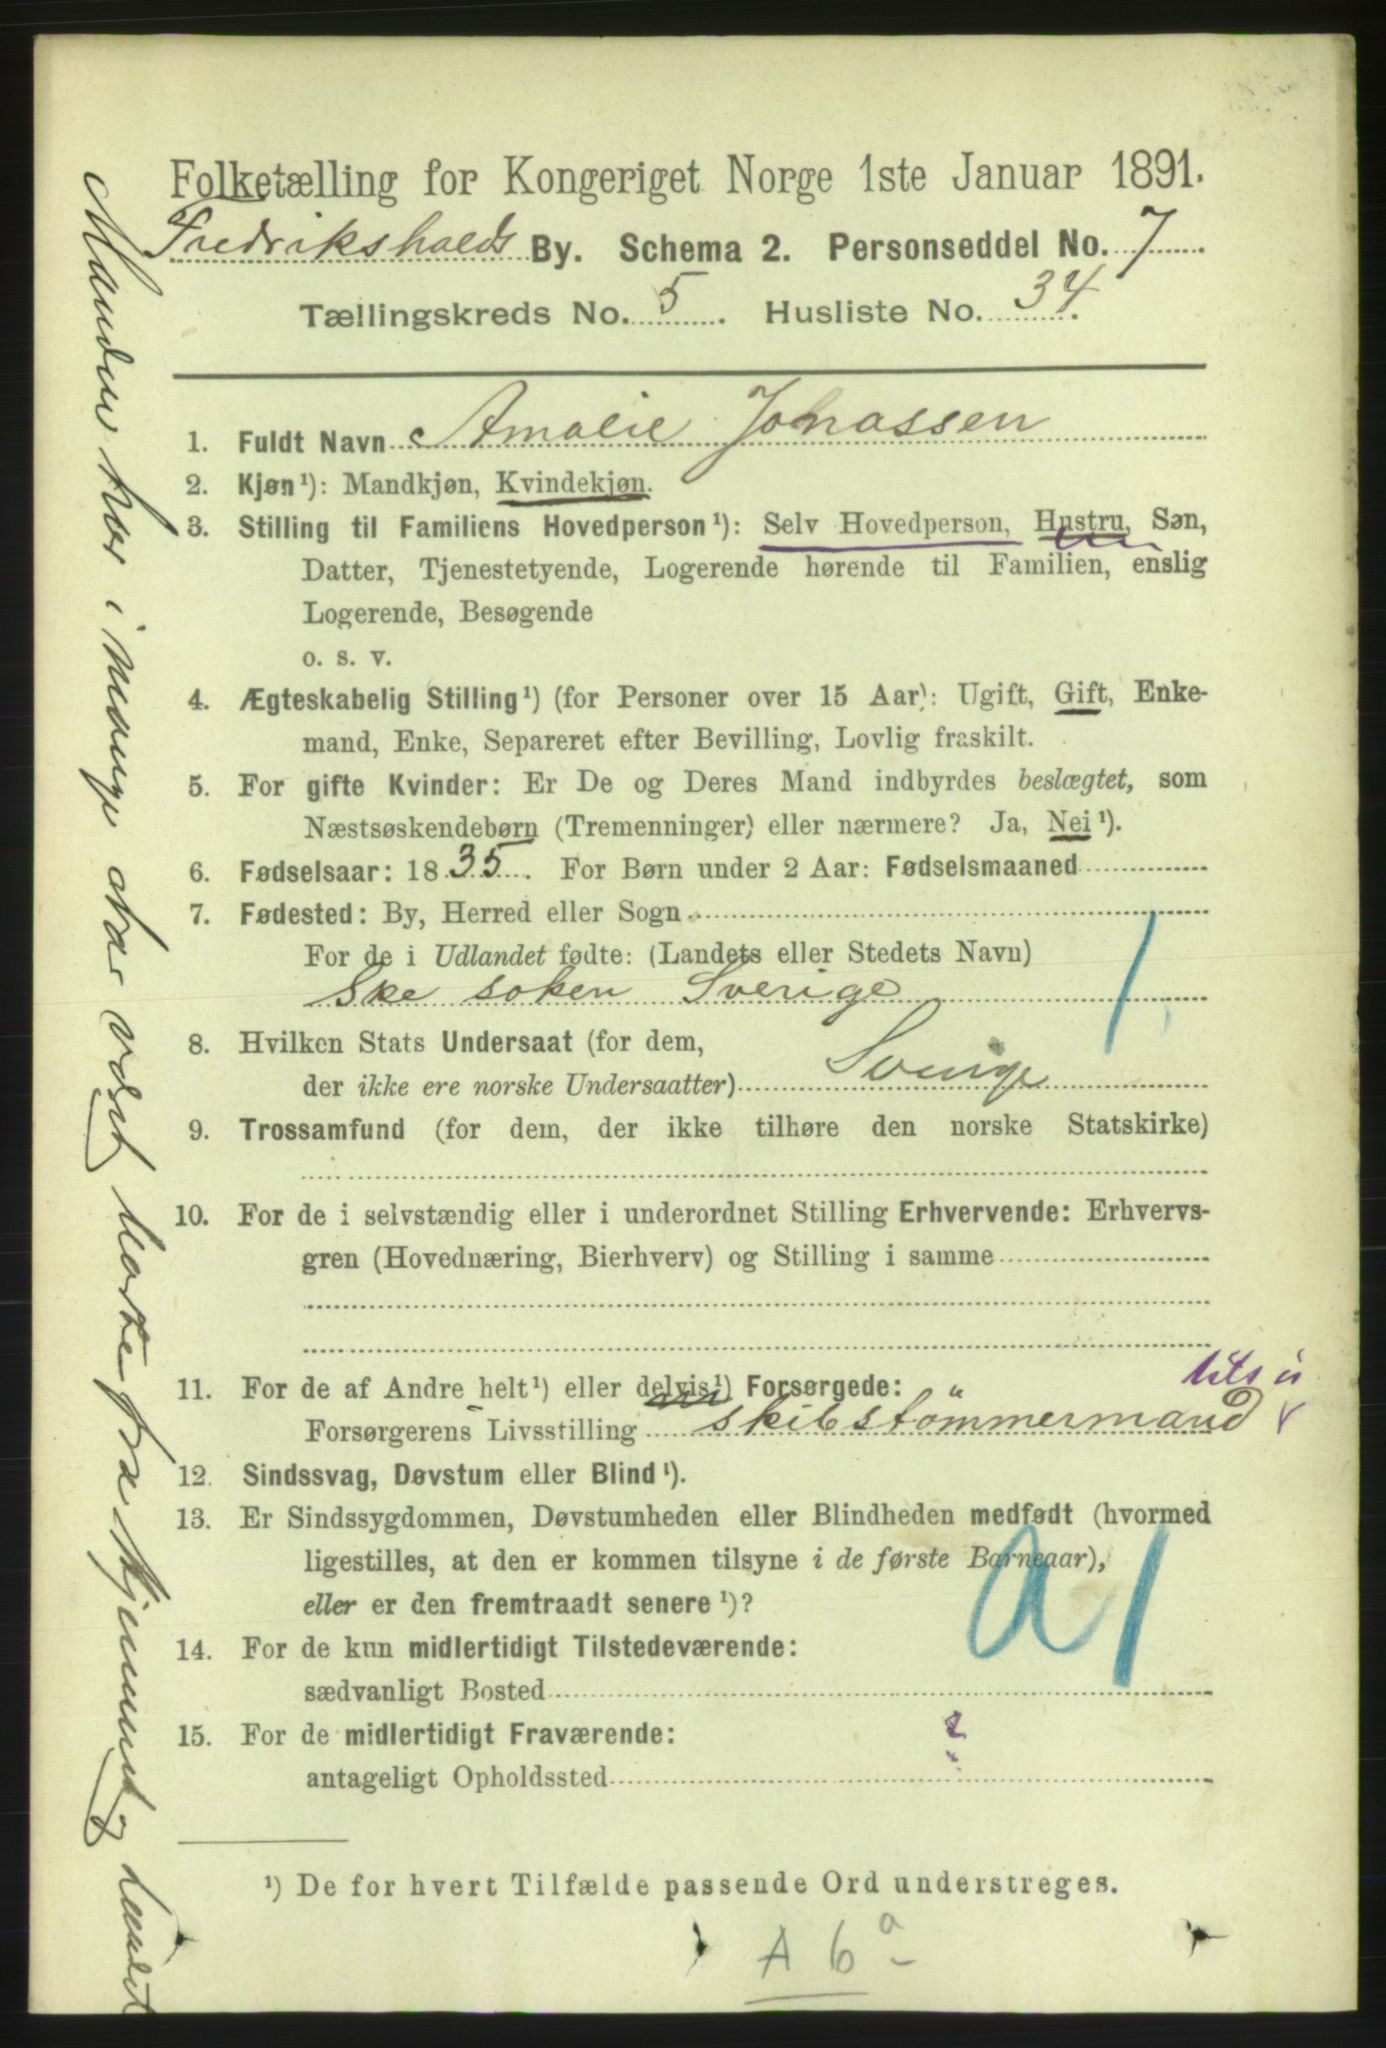 Folketælling for Kongeriget Norge 1ste Januar 1891.
Fredrikshalds By. Schema 2. Personseddel No. 7
Tællingskreds No. 5. Husliste No. 34.
1. Fuldt Navn Amalie Johassen
2. Kjøn¹): Mandkjøn, Kvindekjøn.
3. Stilling til Familiens Hovedperson¹): Selv Hovedperson, Hustru, Søn,
Datter, Tjenestetyende, Logerende hørende til Familien, enslig
Logerende, Besøgende
o. s. v.
4. Ægteskabelig Stilling¹) (for Personer over 15 Aar): Ugift, Gift, Enke-
mand, Enke, Separeret efter Bevilling, Lovlig fraskilt.
5. For gifte Kvinder: Er De og Deres Mand indbyrdes beslægtet, som
Næstsøskendebørn (Tremenninger) eller nærmere? Ja, Nei¹).
6. Fødselsaar: 1835. For Børn under 2 Aar: Fødselsmaaned
7. Fødested: By, Herred eller Sogn
For de i Udlandet fødte: (Landets eller Stedets Navn)
Ske soken Sverige
8. Hvilken Stats Undersaat (for dem,
der ikke ere norske Undersaatter) Sverige
9. Trossamfund (for dem, der ikke tilhøre den norske Statskirke)
10. For de i selvstændig eller i underordnet Stilling Erhvervende: Erhvervs-
gren (Hovednæring, Bierhverv) og Stilling i samme
11. For de af Andre helt¹) eller delvis¹) Forsørgede:
Forsørgerens Livsstilling skibstømmermand
12. Sindssvag, Døvstum eller Blind¹).
13. Er Sindssygdommen, Døvstumheden eller Blindheden medfødt (hvormed
ligestilles, at den er kommen tilsyne i de første Barneaar),
eller er den fremtraadt senere¹)?
a 1
14. For de kun midlertidigt Tilstedeværende:
sædvanligt Bosted
15. For de midlertidigt Fraværende: ?
antageligt Opholdssted
¹) De for hvert Tilfælde passende Ord understreges.
A 6 a
Manden har i mange Aar været borte fra Hjemmet og Landet